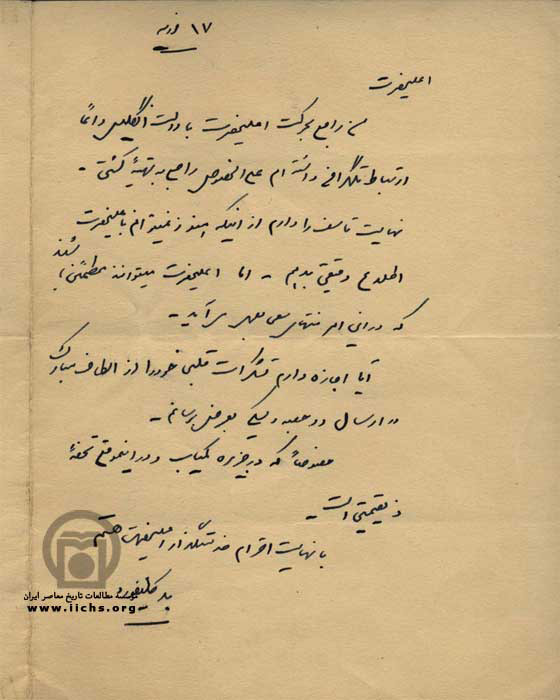 ۱۷ فوریه
اعلیحضرت
من راجع بحرکت اعلیحضرت با دولت انگلیس دائماً
ارتباط تلگرافی داشته ام علی الخصوص راجع به تهیهٔ کشتی -
نهایت تاسف را دارم از اینکه هنوز نمیتوانم باعلیحضرت
اطلاع دقیقی بدهم - اما اعلیحضرت میتوانند مطمئن باشند
که در این امر منتهای سعی بعمل می آید -
آیا اجازه دارم تشکرات قلبی خود را از الطاف مبارک
در ارسال دو جعبه ویسکی بعرض برسانم -
مخصوصاً که در جزیره کمیاب و در اینموقع تحفهٔ
ذیقیمتی است
با نهایت احترام خدمتگذار اعلیحضرت هستم
بد کلیفورد
موسسه مطالعات تاریخ معاصر ایران
www.iichs.org